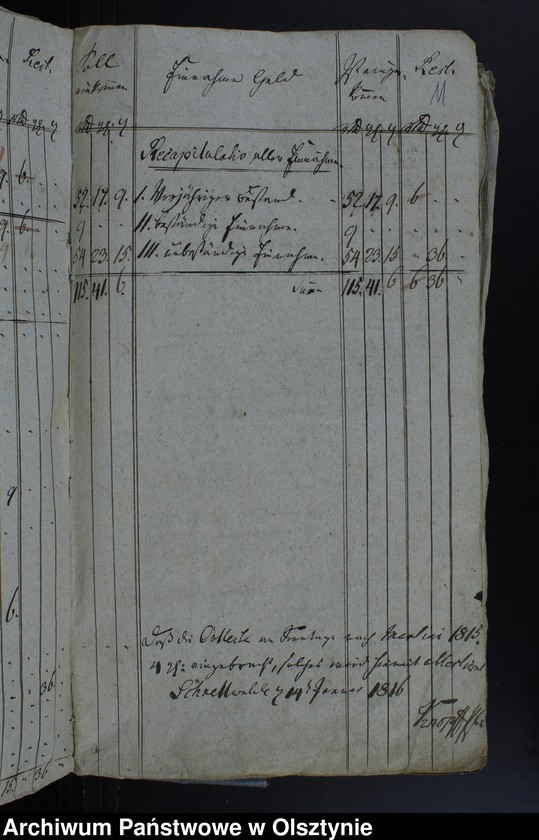 Rest.
Soll
einkommen
Einnahme Geld
Rest.
11
Recapitulatio aller Einnahme.
52. 17. 9. I. Vorjähriger Bestand. 52. 17. 9. 6
9 II. beständige Einnahme. 9
54 23. 15. III. unbeständige Einnahme. 54 23. 15 36
115. 41. 6. Summa 115. 41. 6 6 36
9
6.
36
15. 36
Daß die Collecte am Sonntage nach 1815.
4 eingebracht, solches wird hiermit attestirt
Schnellwalde 14 Januar 1816
Archiwum Państwowe w Olsztynie